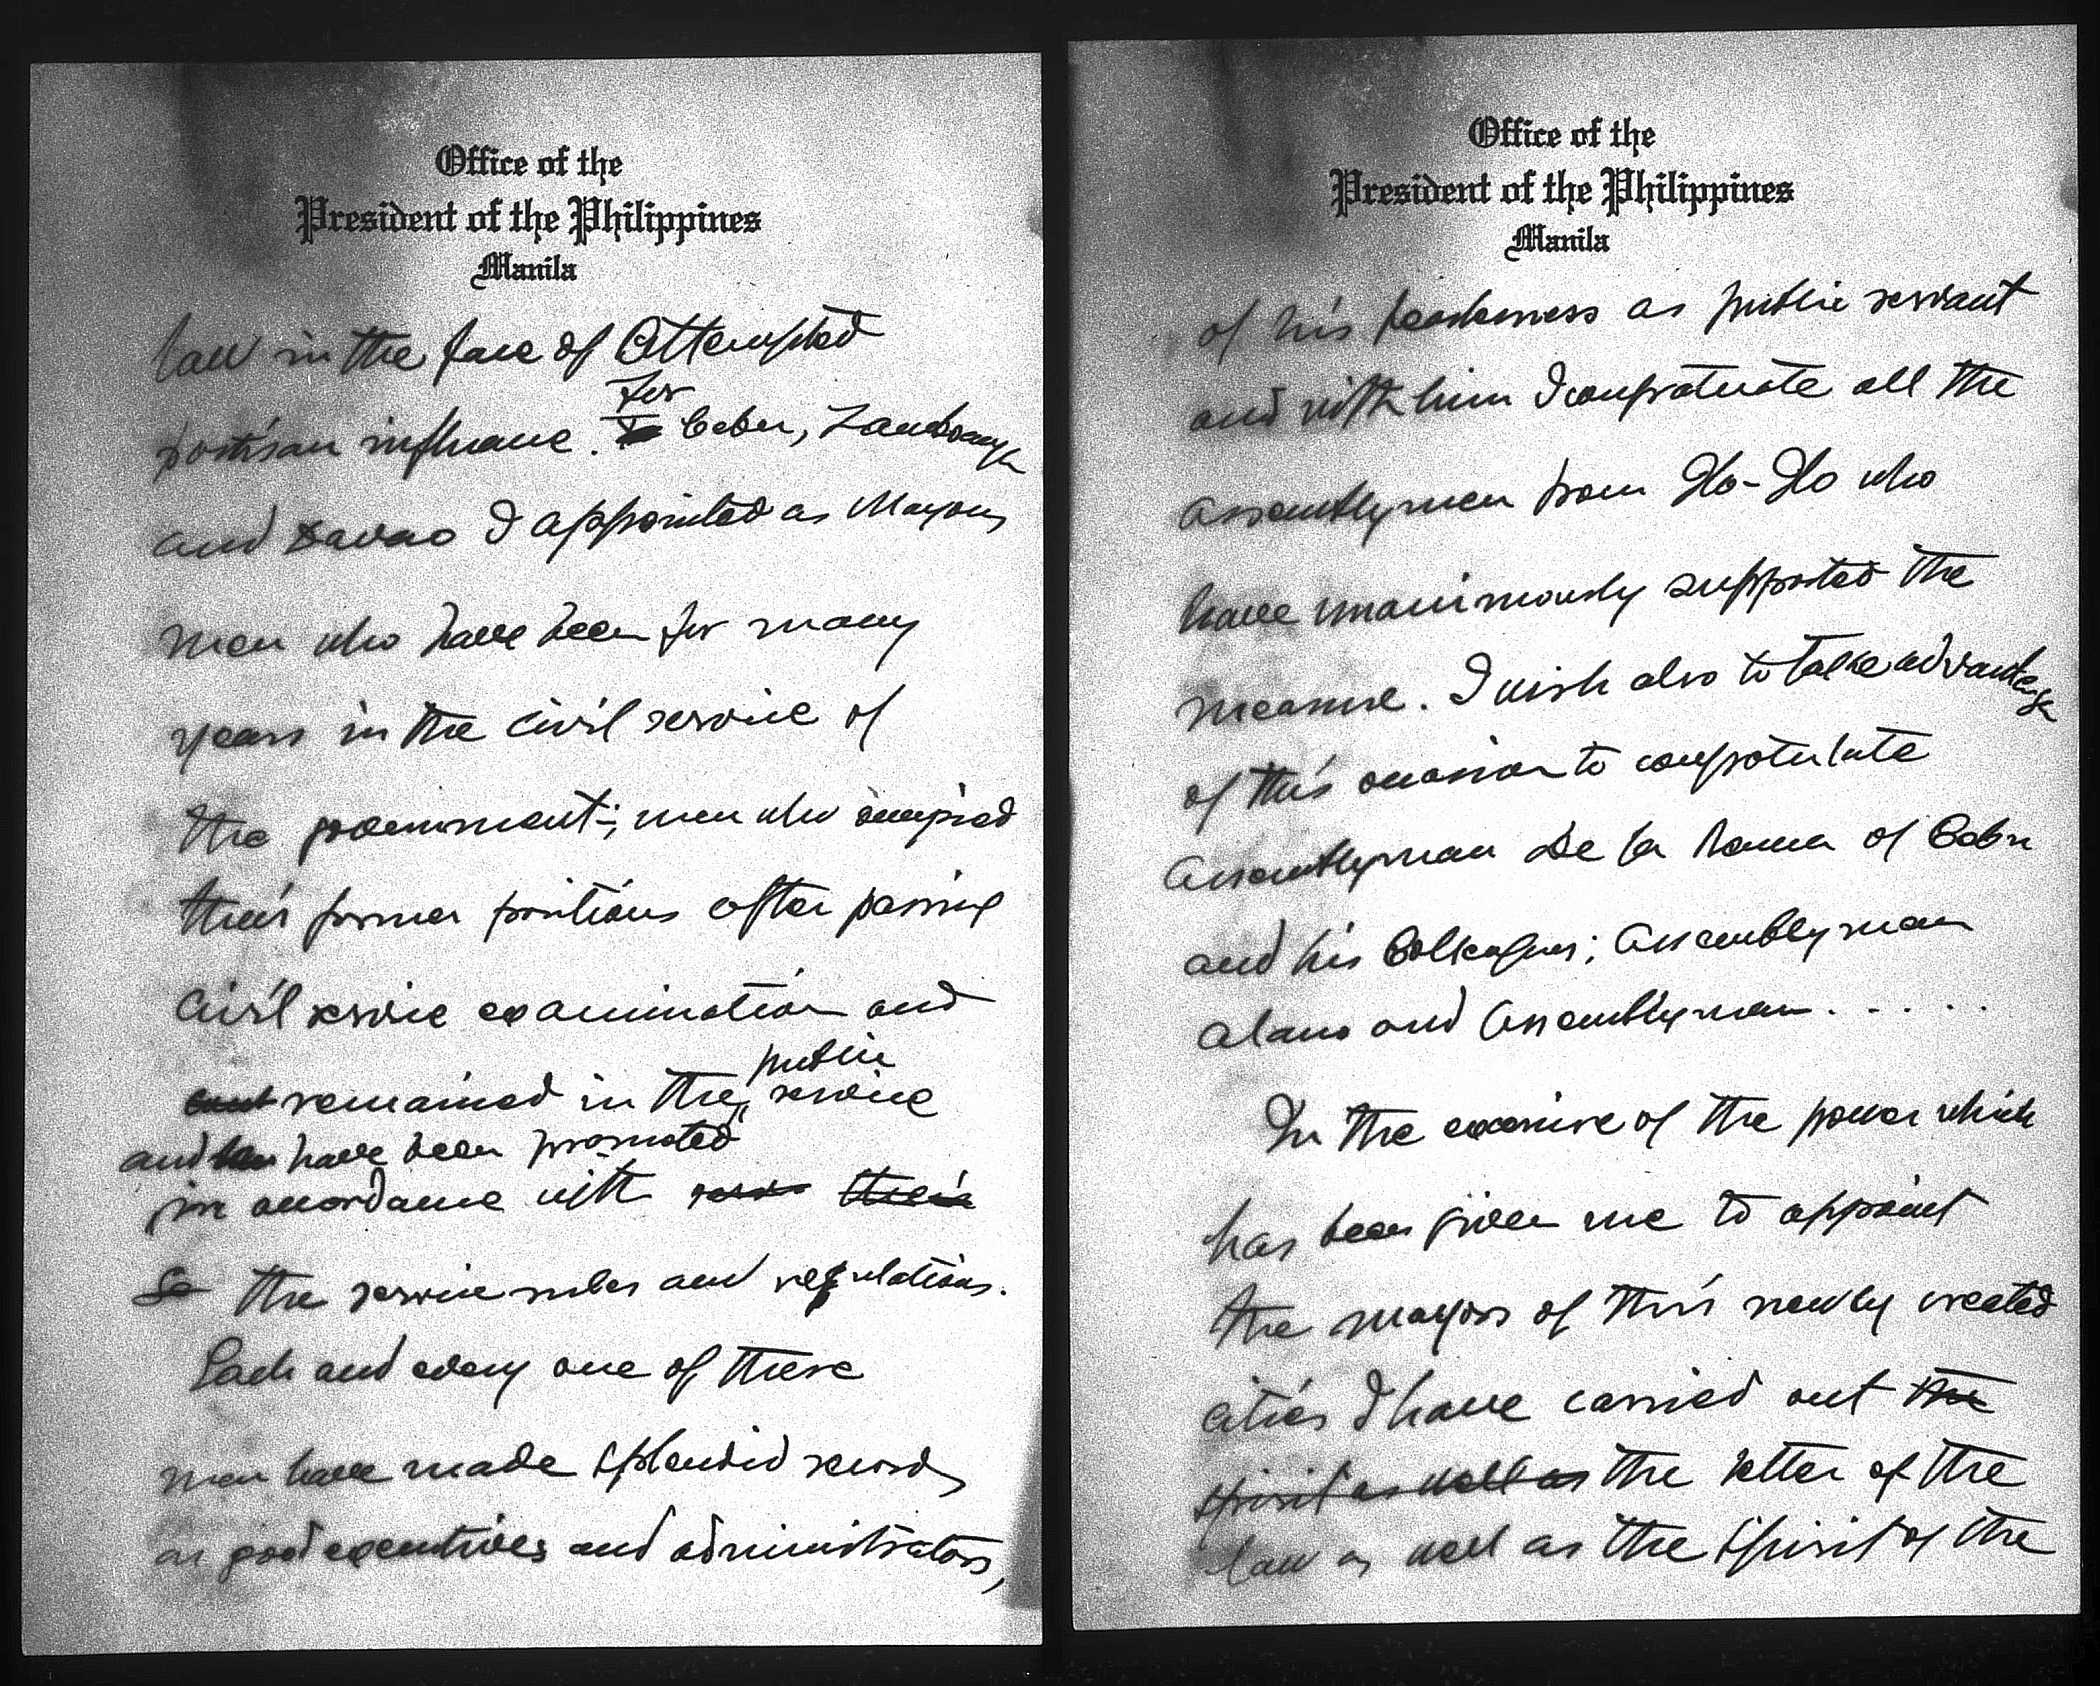 Office of the
President of the Philippines
Manila
law in the face of attempted
partisan influence. For Cebu, Zamboanga
and Davao I appointed as Mayors
men who have been for many
years in the civil service of
the government; men who occupied
their former positions after passing
civil service examination and
remained in the public service
and have been promoted
in accordance with their
the service rules and regulations.
Each and every one of these
men have made splendid records
as good executives and administrators,
Office of the
President of the Philippines
Manila
of his as public servant
and with him I congratulate all the
assemblymen from Ilo-Ilo who
have unanimously supported the
measure. I wish also to take advantage
of this occasion to congratulate
Assemblyman De la Rama of Cebu
and his Colleagues; Assemblyman
Alano and Assemblyman . . . . .
In the exercise of the power which
has been given me to appoint
the mayors of this newly created
cities I have carried out the
spirit as well as the letter of the
law as well as the spirit of the